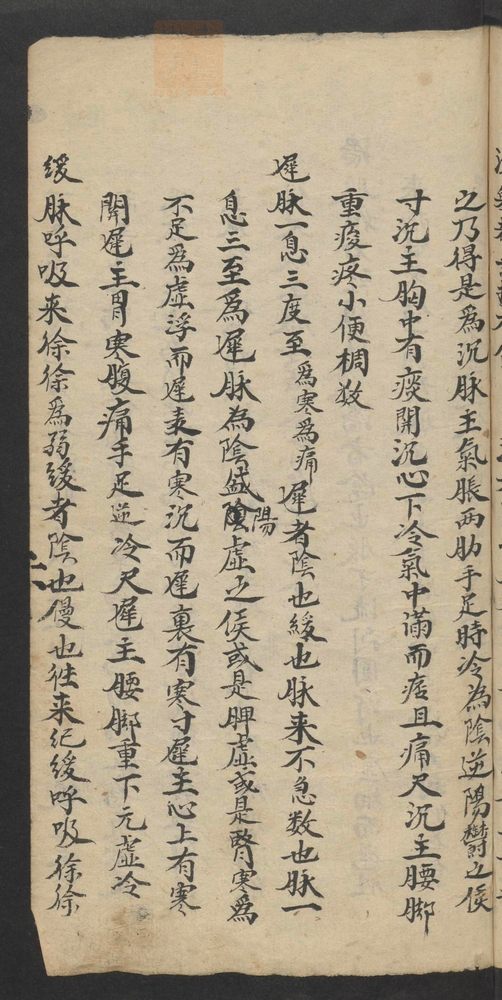 之乃得是為沉脉主氣脹两肋手足時冷為陰逆陽欝之候
寸沉主胸中有痰關沉心下冷氣中滿而痞且痛尺沉主腰脚
重痠疼小便稠数
遲脉一息三度至為寒為痛遲者陰也緩也脉来不急数也脉一
息三至爲遲脉為陰盛陽虛之候或是脾虛或是腎寒爲
不足爲虛浮而遲表有寒沉而遲裏有寒寸遲主心上有寒
關遲主胃寒腹痛手足逆冷尺遲主腰脚重下元虛冷
緩脉呼吸来徐徐爲弱緩者陰也慢也徃来紀緩呼吸徐徐